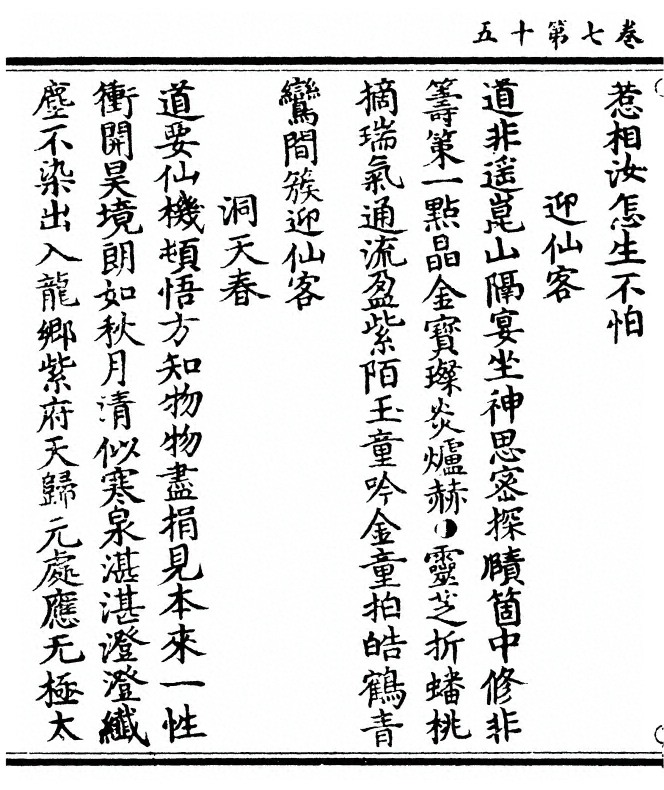 卷七第十五
惹相汝怎生不怕
迎仙客
道非遥崑山隔宴坐神思密探賾箇中修非
籌筭一點晶金寶璨炎爐赫◑靈芝折蟠桃
摘瑞氣通流盈紫陌玉童吟金童拍皓鶴青
鸞間簇迎仙客
洞天春
道要仙機頓悟方知物物盡捐見本來一性
衝開昊境朗如秋月清似寒泉湛湛澄澄纖
塵不染出入龍鄉紫府天歸元處應无極太